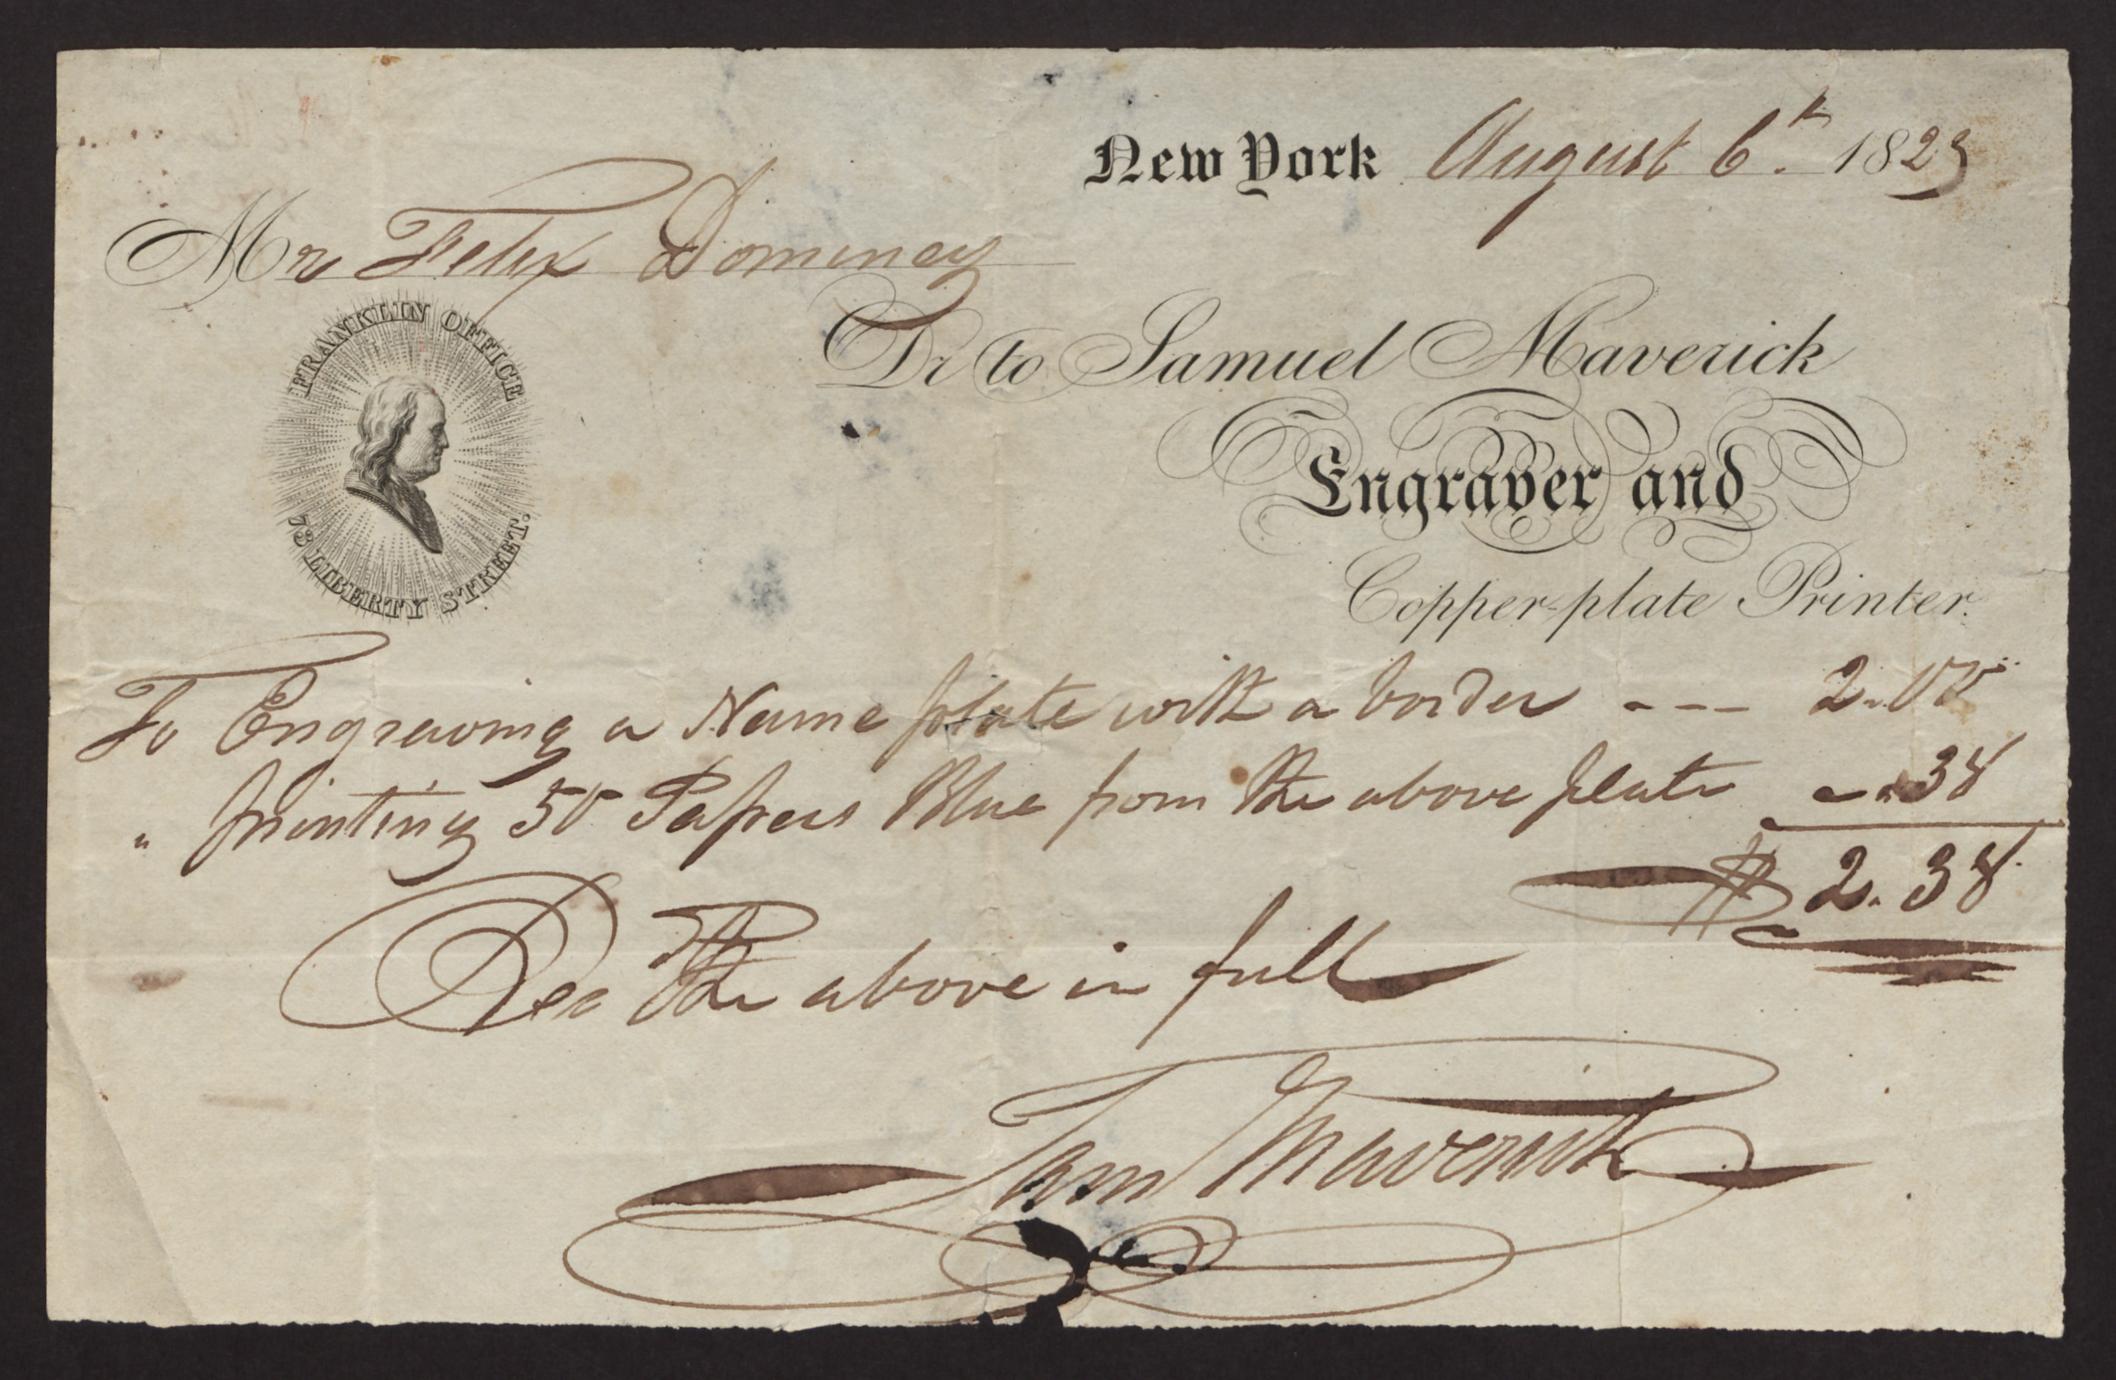 New York August 6th. 1823
Mr Felix Dominey
FRANKLIN OFFICE
73 LIBERTY STREET.
Dr to Samuel Maverick
Engraver and
Copper-plate Printer.
To Engraving a Name plate with a border --- 2.00
" printing 50 Papers Blue from the above plate - .38
$ 2.38
Rec the above in full
Sam Maverick